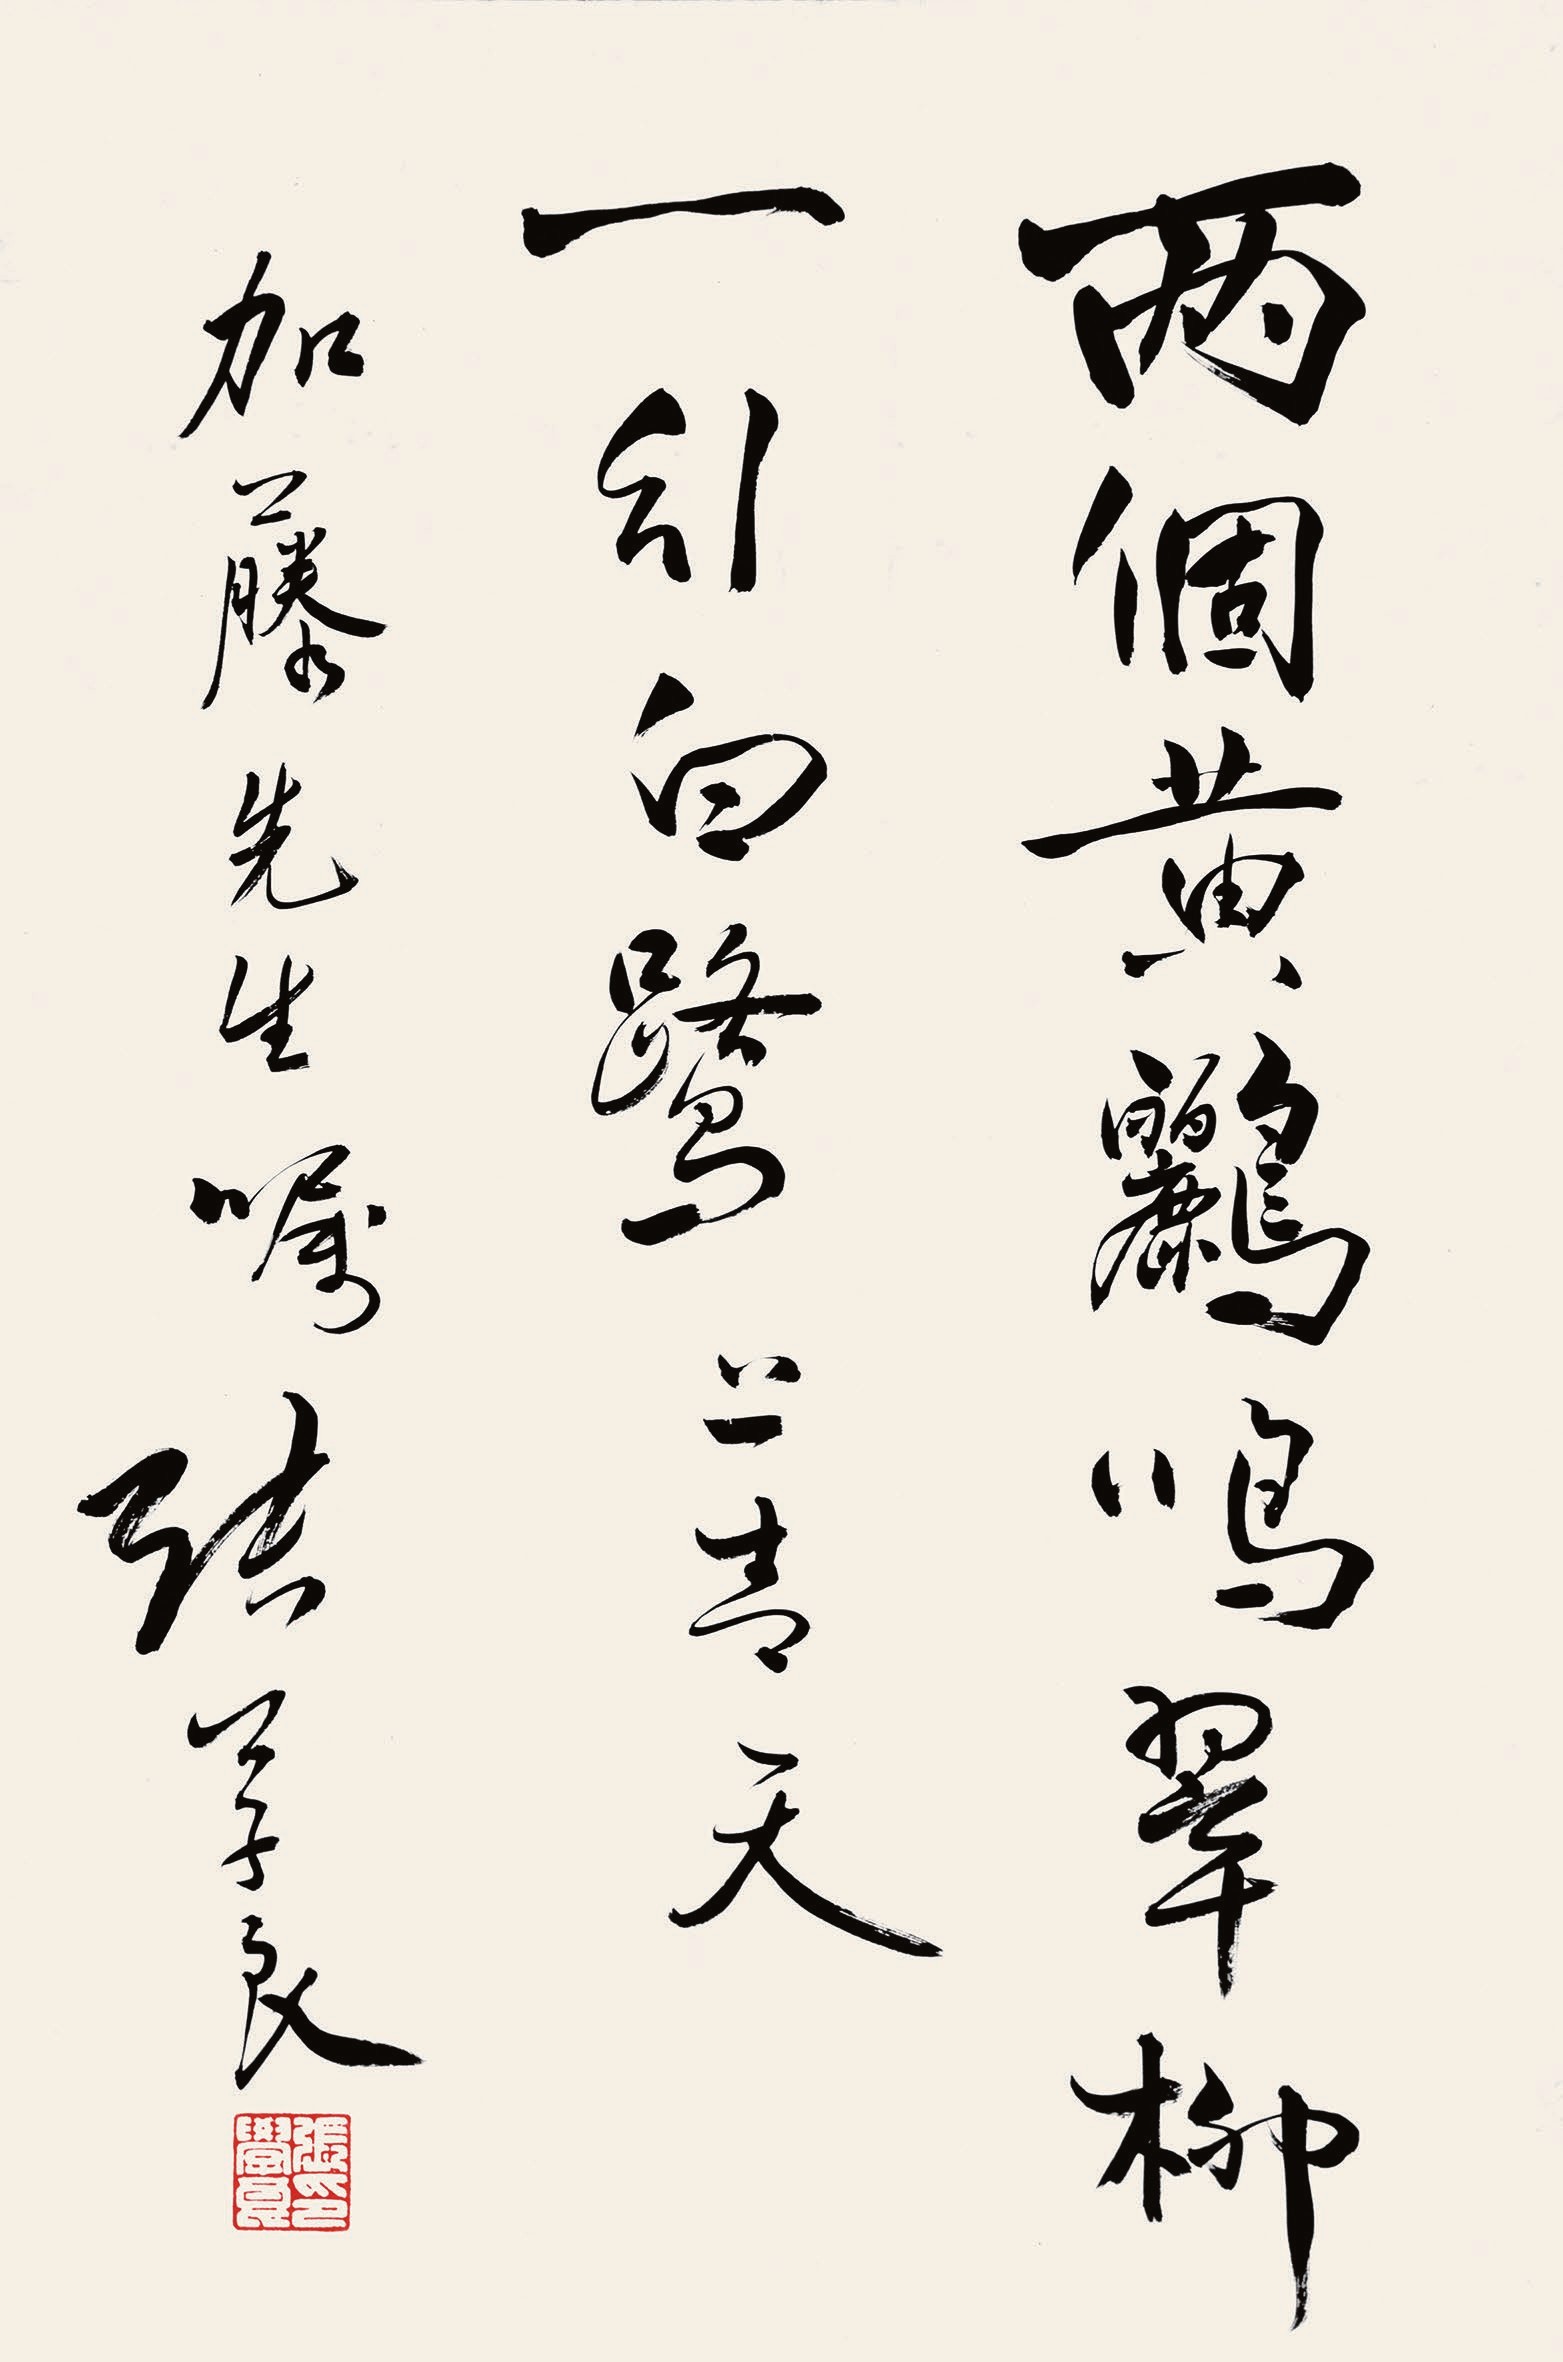 两個黄鸝鳴翠柳
一引白鷺上青天
加藤先生嘱 張學良
張學良印